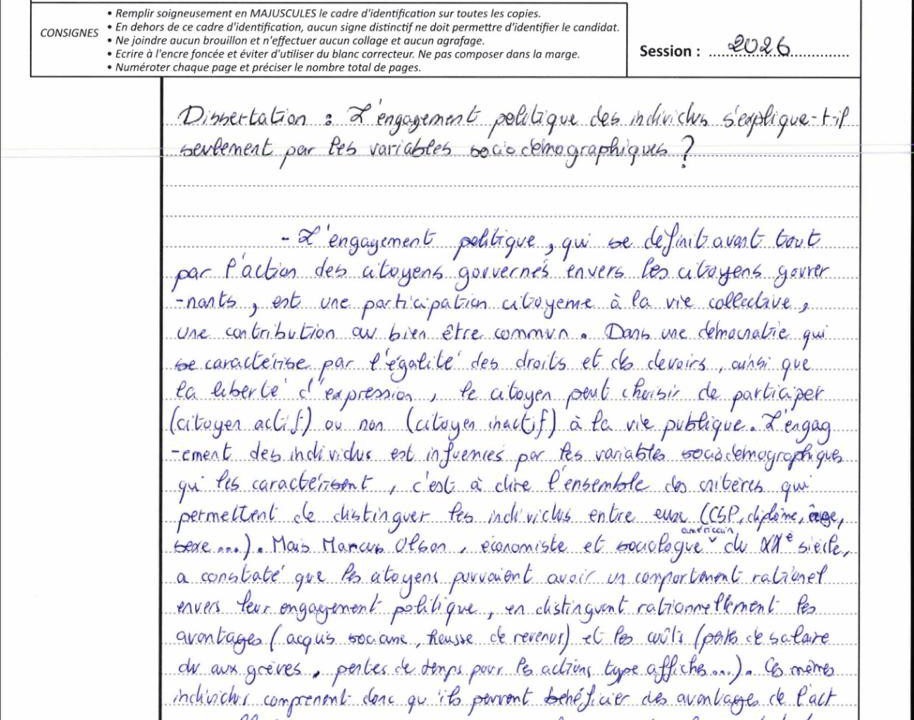 CONSIGNES
• Remplir soigneusement en MAJUSCULES le cadre d'identification sur toutes les copies.
• En dehors de ce cadre d'identification, aucun signe distinctif ne doit permettre d'identifier le candidat.
• Ne joindre aucun brouillon et n'effectuer aucun collage et aucun agrafage.
• Ecrire à l'encre foncée et éviter d'utiliser du blanc correcteur. Ne pas composer dans la marge.
• Numéroter chaque page et préciser le nombre total de pages.
Session : 2026
Dissertation : L'engagement politique des individus s'explique-t-il
seulement par les variables sociodémographiques ?
- L'engagement politique, qui se définit avant tout
par l'action des citoyens gouvernés envers les citoyens gouver
-nants, est une participation citoyenne à la vie collective,
une contribution au bien être commun. Dans une démocratie qui
se caractérise par l'égalité des droits et des devoirs, ainsi que
la liberté d'expression, le citoyen peut choisir de participer
(citoyen actif) ou non (citoyen inactif) à la vie publique. L'engag
-ement des individus est influencés par les variables sociodémographiques
qui les caractérisent, c'est à dire l'ensemble des critères qui
permettent de distinguer les individus entre eux (CSP, diplôme, âge,
sexe...). Mais Marcus Olson, économiste et sociologue américain du XXe siècle,
a constaté que les citoyens pouvaient avoir un comportement rationel
envers leur engagement politique, en distinguant rationnellement les
avantages (acquis, hausse de revenus) et les coûts (perte de salaire
du aux grèves, pertes de temps pour les actions type affiche...). Ces mêmes
individus comprennent donc qu'ils peuvent bénéficier des avantages de l'act